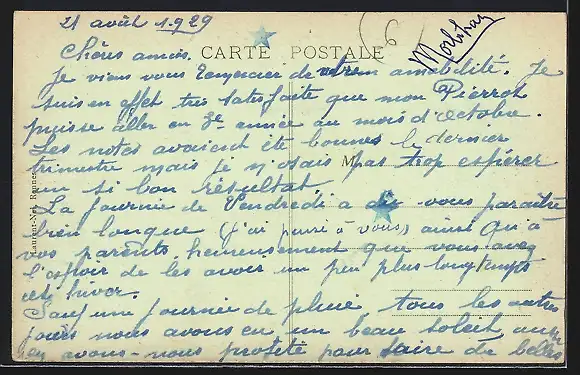 21 août 1929
Morbihan
CARTE POSTALE
Chères amies.
Je viens vous remercier de votre amabilité. Je
suis en effet très satisfaite que mon Pierrot
puisse aller en 3e année au mois d'octobre.
Les notes avaient été bonnes le dernier
trimestre mais je n'osais pas trop espérer
un si bon résultat.
M
La journée de Vendredi a dû vous paraître
bien longue (j'ai pensé à vous) ainsi qu'à
vos parents, heureusement que vous avez
l'espoir de les avoir un peu plus longtemps
cet hiver.
Sauf une journée de pluie tous les autres
jours nous avons eu un beau soleil aussi
en avons-nous profité pour faire de belles
Laurent-Nel, Rennes